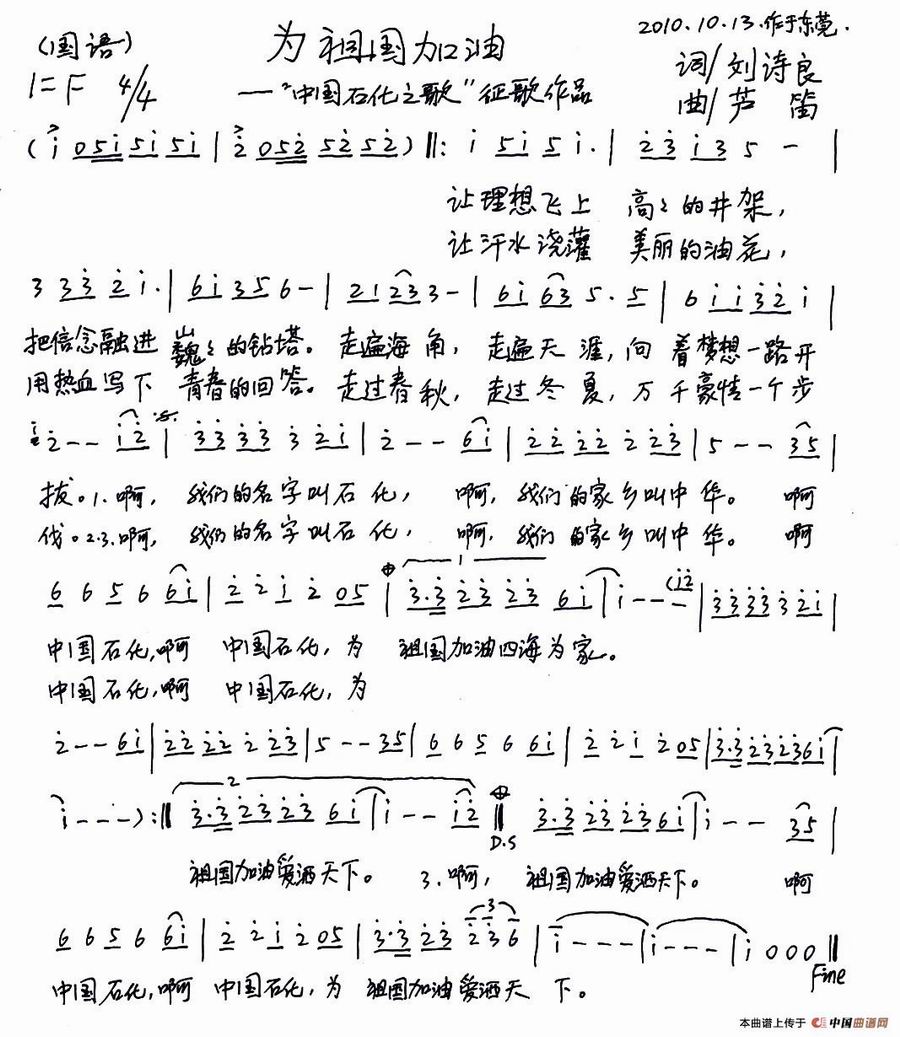 (国语)
为祖国加油
2010.10.13.作于东莞.
1=F 4/4
—“中国石化之歌”征歌作品
词/刘诗良
曲/芦笛
(i̇ 0 5 i̇ 5 i̇ 5 i̇ | 2̇ 0 5 2̇ 5 2̇ 5 2̇) ‖: i̇ 5 i̇ 5 i̇. | 2̇ 3̇ i̇ 3̇ 5 - |
让理想飞上 高々的井架，
让汗水浇灌 美丽的油花，
3 3 3̇ 2̇ i̇. | 6 i̇ 3 5 6 - | 2 1 2 3 3 - | 6 i̇ 6 3 5. 5 | 6 i̇ i̇ 3̇ 2̇ i̇ |
把信念融进 巍々的钻塔。走遍海角，走遍天涯，向 着梦想一路开
用热血写下 青春的回答。走过春秋，走过冬夏，万 千豪情一个步
2̇ - - i̇ 2̇ | 3̇ 3̇ 3̇ 3̇ 3̇ 2̇ i̇ | 2̇ - - 6 i̇ | 2̇ 2̇ 2̇ 2̇ 2̇ 2̇ 3̇ | 5 - - 3 5 |
拔。1.啊，我们的名字叫石化，啊，我们的家乡叫中华。啊
伐。2.3.啊，我们的名字叫石化，啊，我们的家乡叫中华。啊
6 6 5 6 6 i̇ | 2̇ 2̇ i̇ 2̇ 0 5 | 1 3̇. 3̇ 2̇ 3̇ 2̇ 3̇ 6 i̇ | i̇ - - (i̇ 2̇ | 3̇ 3̇ 3̇ 3̇ 3̇ 2̇ i̇ |
中国石化，啊 中国石化，为 祖国加油四海为家。
中国石化，啊 中国石化，为
2̇ - - 6 i̇ | 2̇ 2̇ 2̇ 2̇ 2̇ 2̇ 3̇ | 5 - - 3 5 | 6 6 5 6 6 i̇ | 2̇ 2̇ i̇ 2̇ 0 5 | 3̇. 3̇ 2̇ 3̇ 2̇ 3̇ 6 i̇ |
i̇ - - -) :‖ 2 3̇. 3̇ 2̇ 3̇ 2̇ 3̇ 6 i̇ | i̇ - - i̇ 2̇ ‖ D.S 3̇. 3̇ 2̇ 3̇ 2̇ 3̇ 6 i̇ | i̇ - - 3̇ 5 |
祖国加油爱洒天下。 3.啊，祖国加油爱洒天下。 啊
6 6 5 6 6 i̇ | 2̇ 2̇ i̇ 2̇ 0 5 | 3̇. 3̇ 2̇ 3̇ 3 2̇ 3̇ 6 | i̇ - - - | i̇ - - - | i̇ 0 0 0 ‖
Fine
中国石化，啊 中国石化，为 祖国加油爱洒天 下。
本曲谱上传于 中国曲谱网